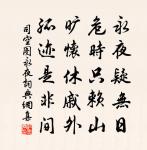 永夜疑無日
危時只賴山
曠懷休戚外
孤迹是非間
司空圖永夜詞典網喜